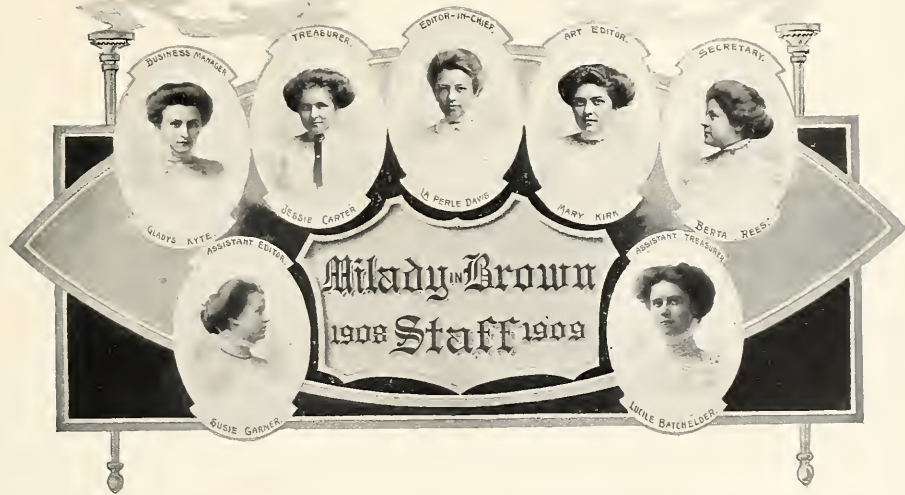 BUSINESS MANAGER.
GLADYS KYTE.
TREASURER.
JESSIE CARTER
EDITOR-IN-CHIEF.
LA PERLE DAVIS
ART EDITOR.
MARY KIRK
SECRETARY.
BERTA REES.
ASSISTANT EDITOR.
SUSIE GARNER.
Milady IN Brown
1908 Staff 1909
ASSISTANT TREASURER.
LUCILE BATCHELDER.